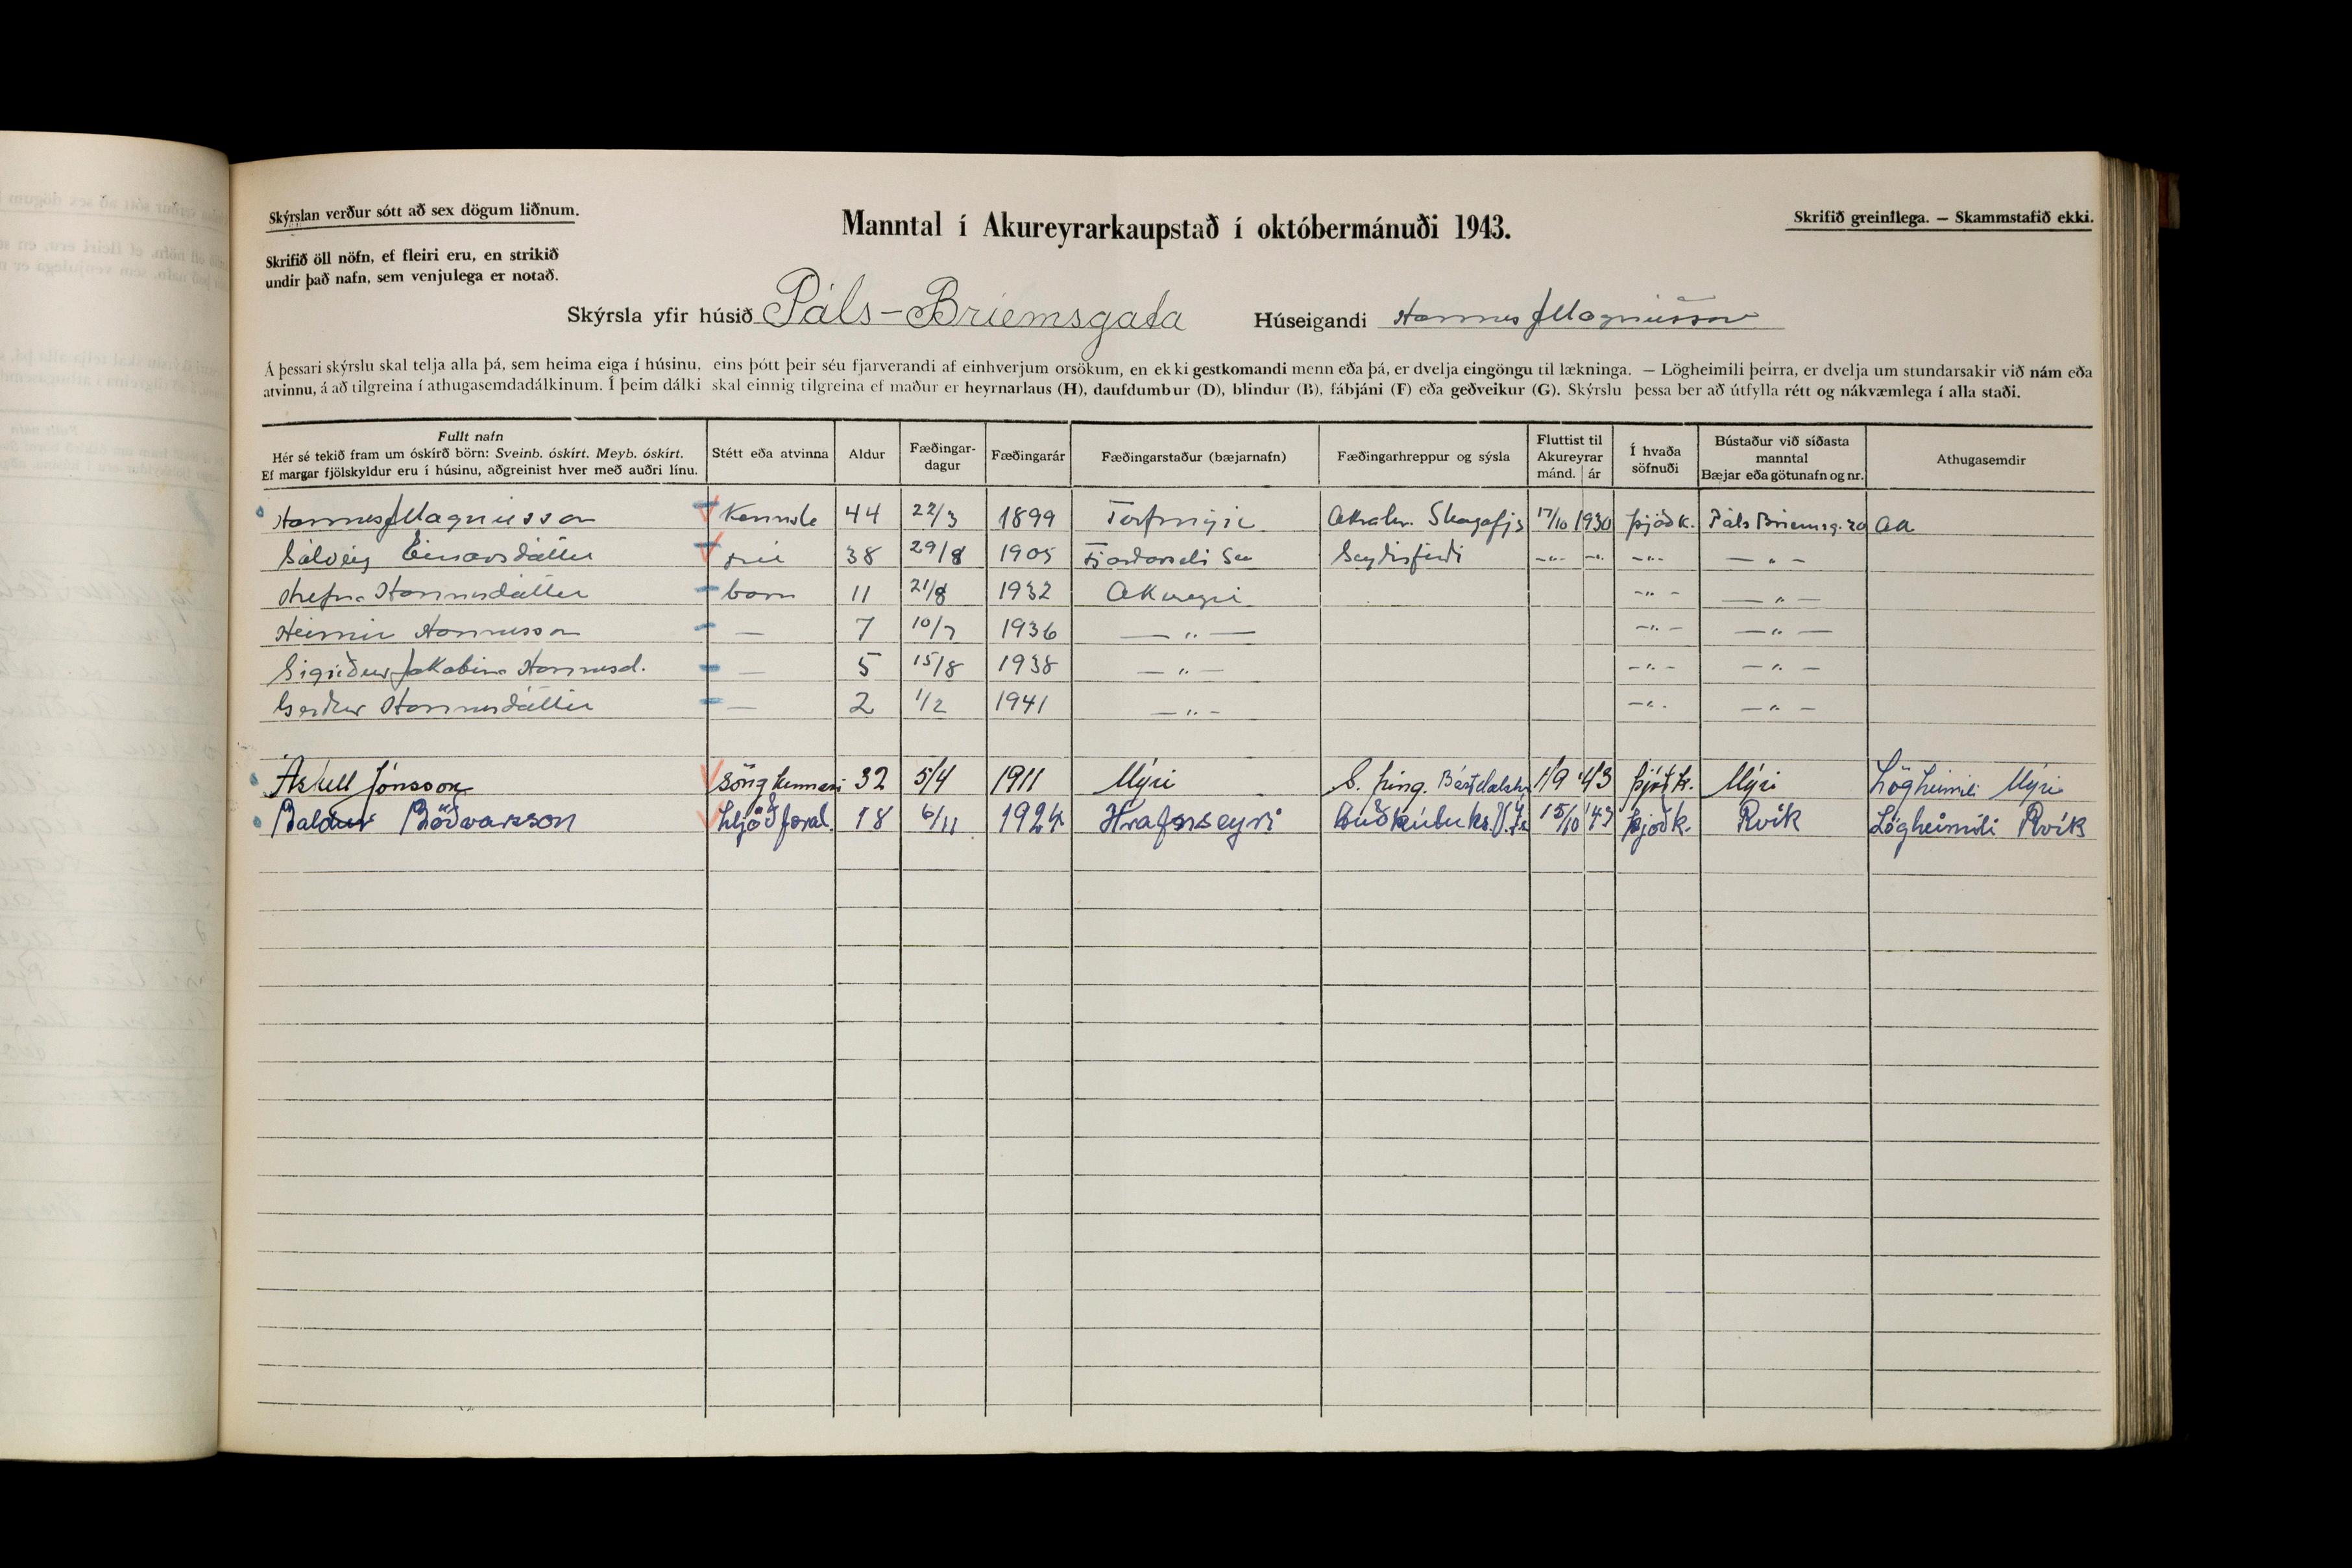 Skýrslan verður sótt að sex dögum liðnum.
Manntal í Akureyrarkaupstað í októbermánuði 1943.
Skrifið greinilega. — Skammstafið ekki.
Skrifið öll nöfn, ef fleiri eru, en strikið
undir það nafn, sem venjulega er notað.
Skýrsla yfir húsið Páls-Briemsgata Húseigandi Hannes J Magnússon
Á þessari skýrslu skal telja alla þá, sem heima eiga í húsinu, eins þótt þeir séu fjarverandi af einhverjum orsökum, en ekki gestkomandi menn eða þá, er dvelja eingöngu til lækninga. — Lögheimili þeirra, er dvelja um stundarsakir við nám eða
atvinnu, á að tilgreina í athugasemdadálkinum. Í þeim dálki skal einnig tilgreina ef maður er heyrnarlaus (H), daufdumbur (D), blindur (B), fábjáni (F) eða geðveikur (G). Skýrslu þessa ber að útfylla rétt og nákvæmlega í alla staði.
Fullt nafn
Hér sé tekið fram um óskírð börn: Sveinb. óskírt. Meyb. óskírt.
Ef margar fjölskyldur eru í húsinu, aðgreinist hver með auðri línu.
Stétt eða atvinna
Aldur
Fæðingar-
dagur
Fæðingarár
Fæðingarstaður (bæjarnafn)
Fæðingarhreppur og sýsla
Fluttist til
Akureyrar
mánd. ár
Í hvaða
söfnuði
Bústaður við síðasta
manntal
Bæjar eða götunafn og nr.
Athugasemdir
Hannes J Magnússon 44 22/3 1899 Torfmýri Akrahr. Skagafjs 17/10 1930 þjóðk. Páls Briemsg. 20 Ak
Sólveig Einarsdóttir frú 38 29/8 1905 Seyðisfirði -"- -"- -"- -"-
Hrefna Hannesdóttir barn 11 21/8 1932 Akureyri -"- -"-
Heimir Hannesson — 7 10/7 1936 -"- -"- -"-
Sigríður Jakobína Hannesd. — 5 15/8 1938 -"- -"- -"-
Gerður Hannesdóttir — 2 1/2 1941 -"- -"- -"-
Áskell Jónsson Söngkennari 32 5/4 1911 Mýri S. þing. 1/9 '43 þjóðk. Mýri Lögheimili Mýri
Baldur Böðvarsson 18 6/11 1924 Hrafnseyri 15/10 '43 þjóðk. Rvík Lögheimili Rvík